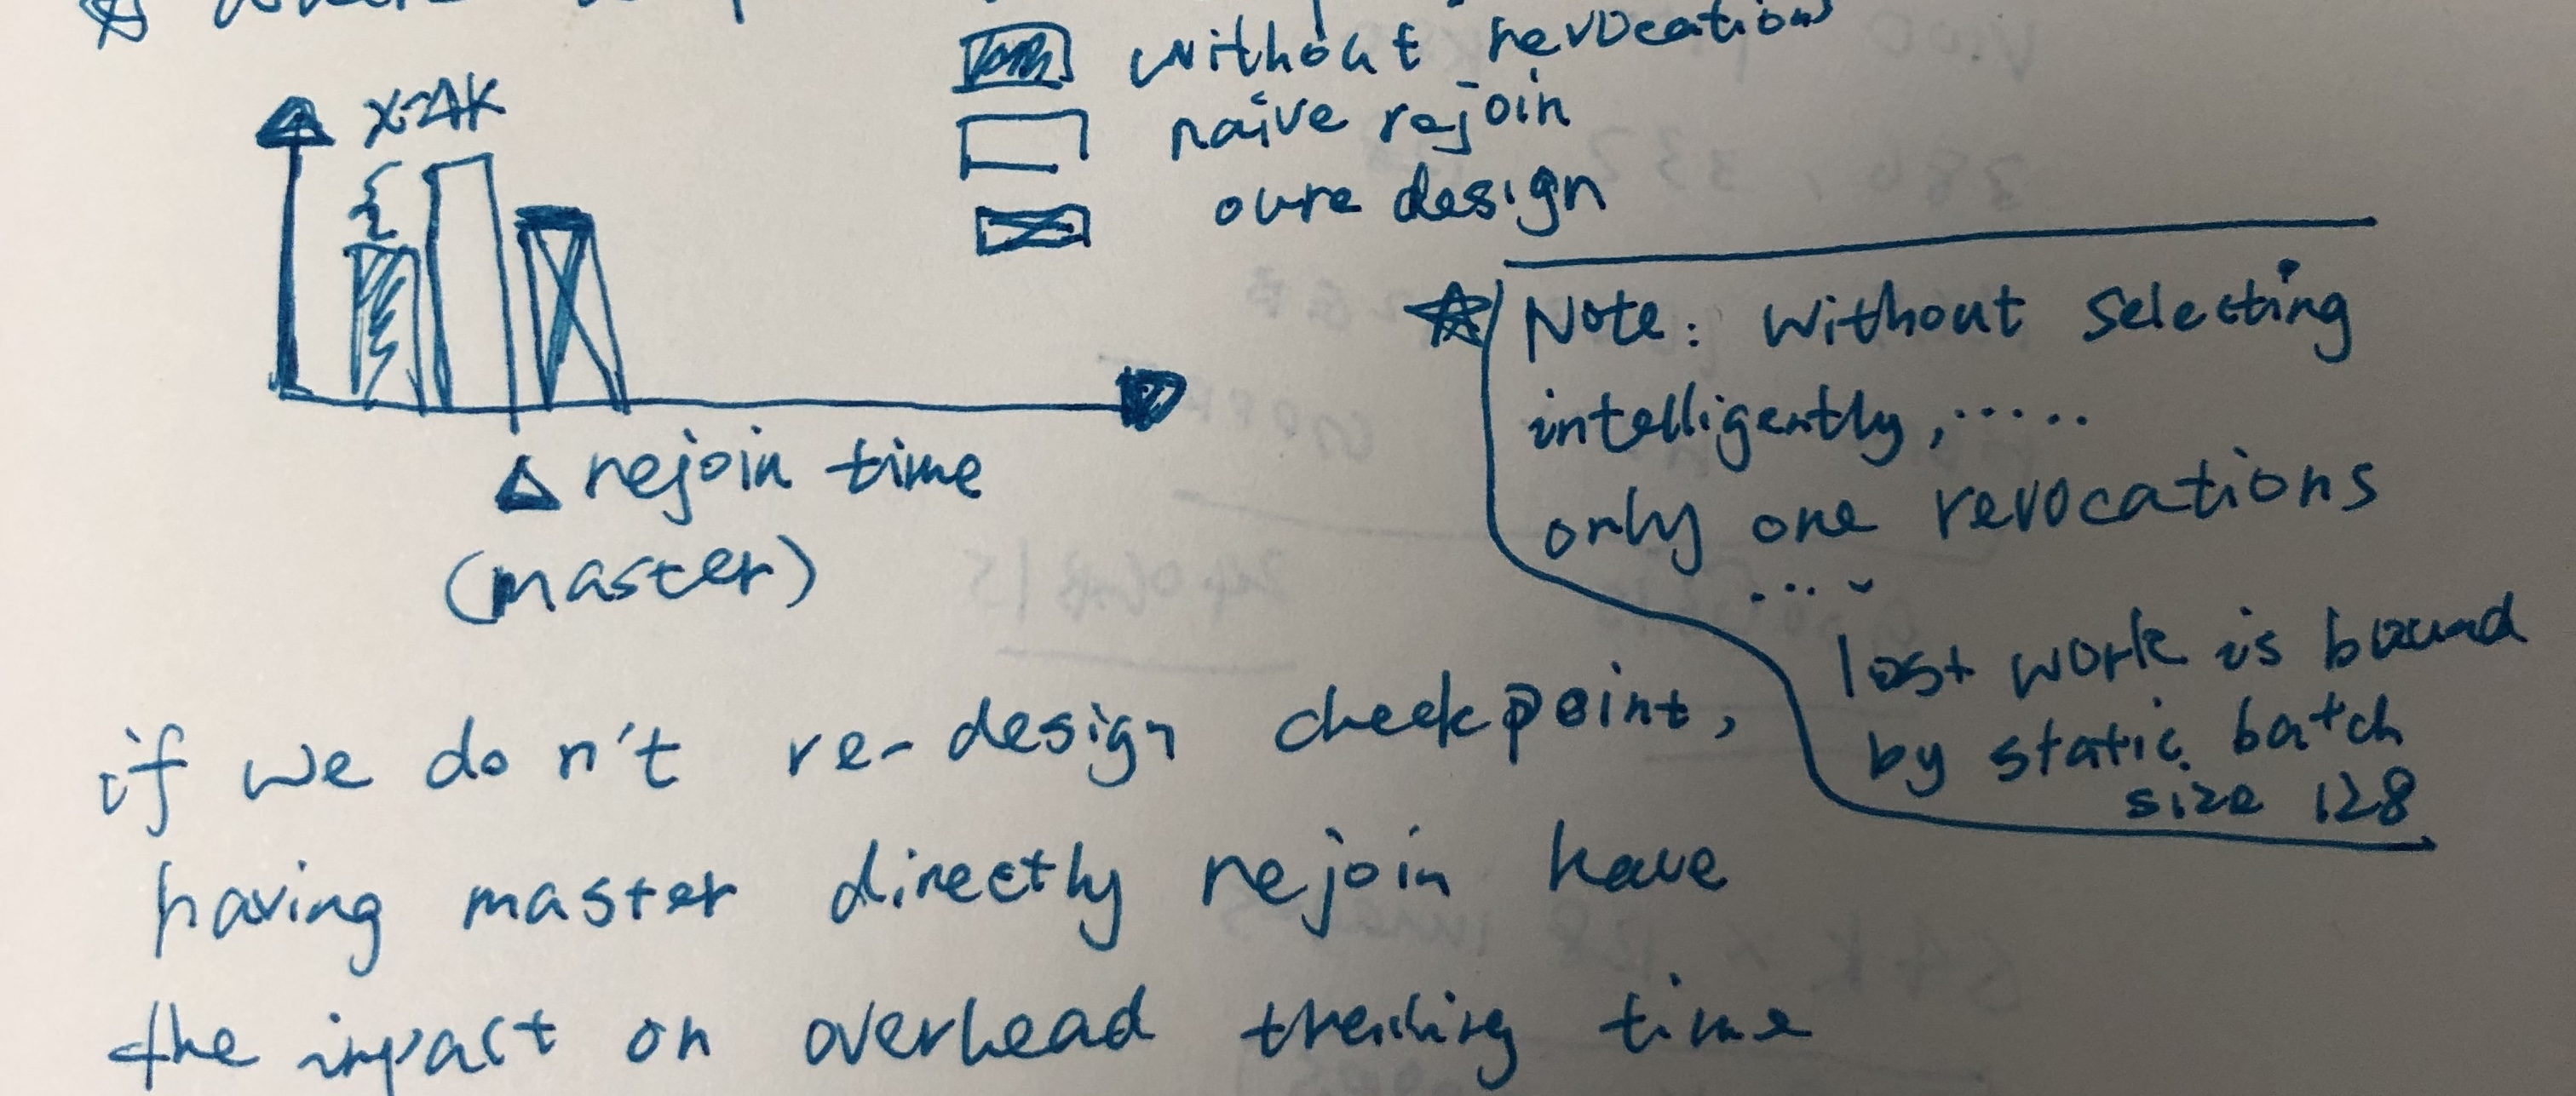 without revocation
naive rejoin
oure design
X=4K
△ rejoin time
(master)
Note: Without selecting
intelligently, .....
only one revocations
....
lost work is bound
by static batch
size 128
if we don't re-design checkpoint,
having master directly rejoin have
the impact on overhead time